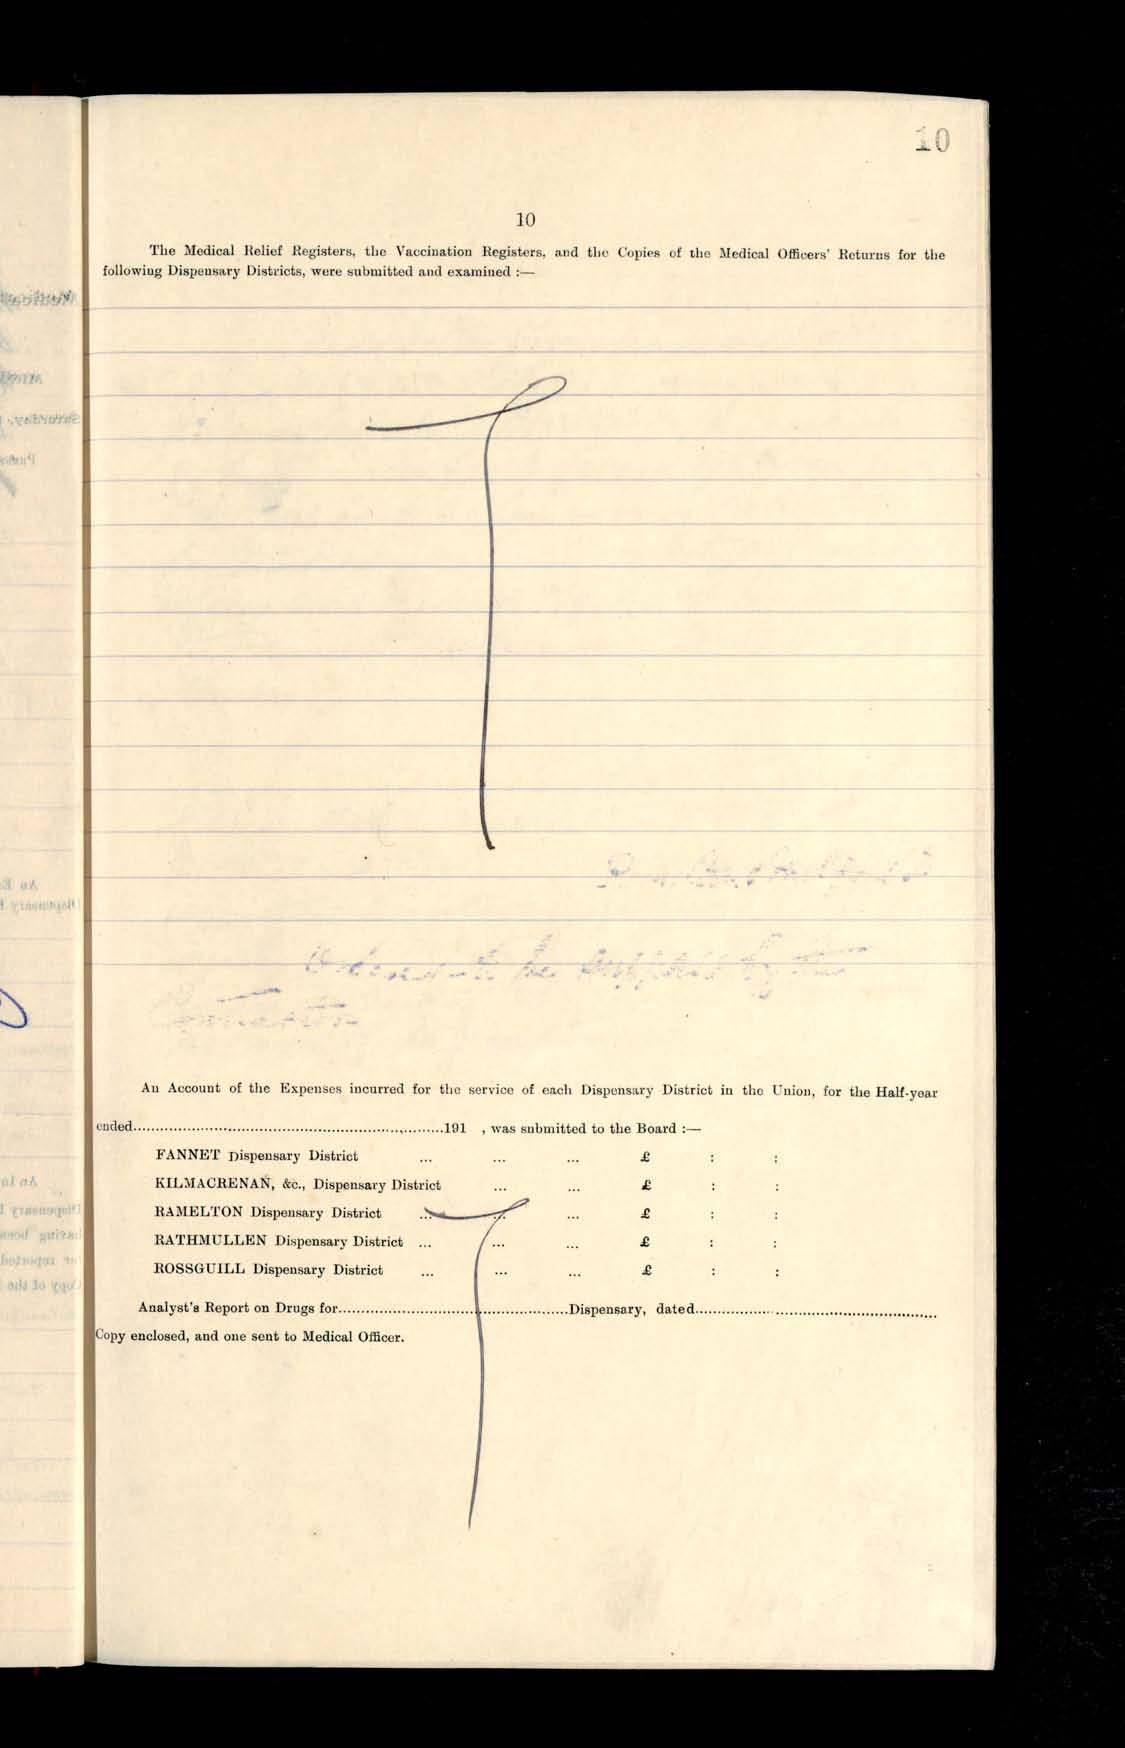 10
10
The Medical Relief Registers, the Vaccination Registers, and the Copies of the Medical Officers' Returns for the
following Dispensary Districts, were submitted and examined :—
to be supplied by the
An Account of the Expenses incurred for the service of each Dispensary District in the Union, for the Half-year
ended..........................................................191 , was submitted to the Board :—
FANNET Dispensary District ... ... ... £ : :
KILMACRENAN, &c., Dispensary District ... ... £ : :
RAMELTON Dispensary District ... ... ... £ : :
RATHMULLEN Dispensary District ... ... ... £ : :
ROSSGUILL Dispensary District ... ... ... £ : :
Analyst's Report on Drugs for..........................................Dispensary, dated..........................................
Copy enclosed, and one sent to Medical Officer.